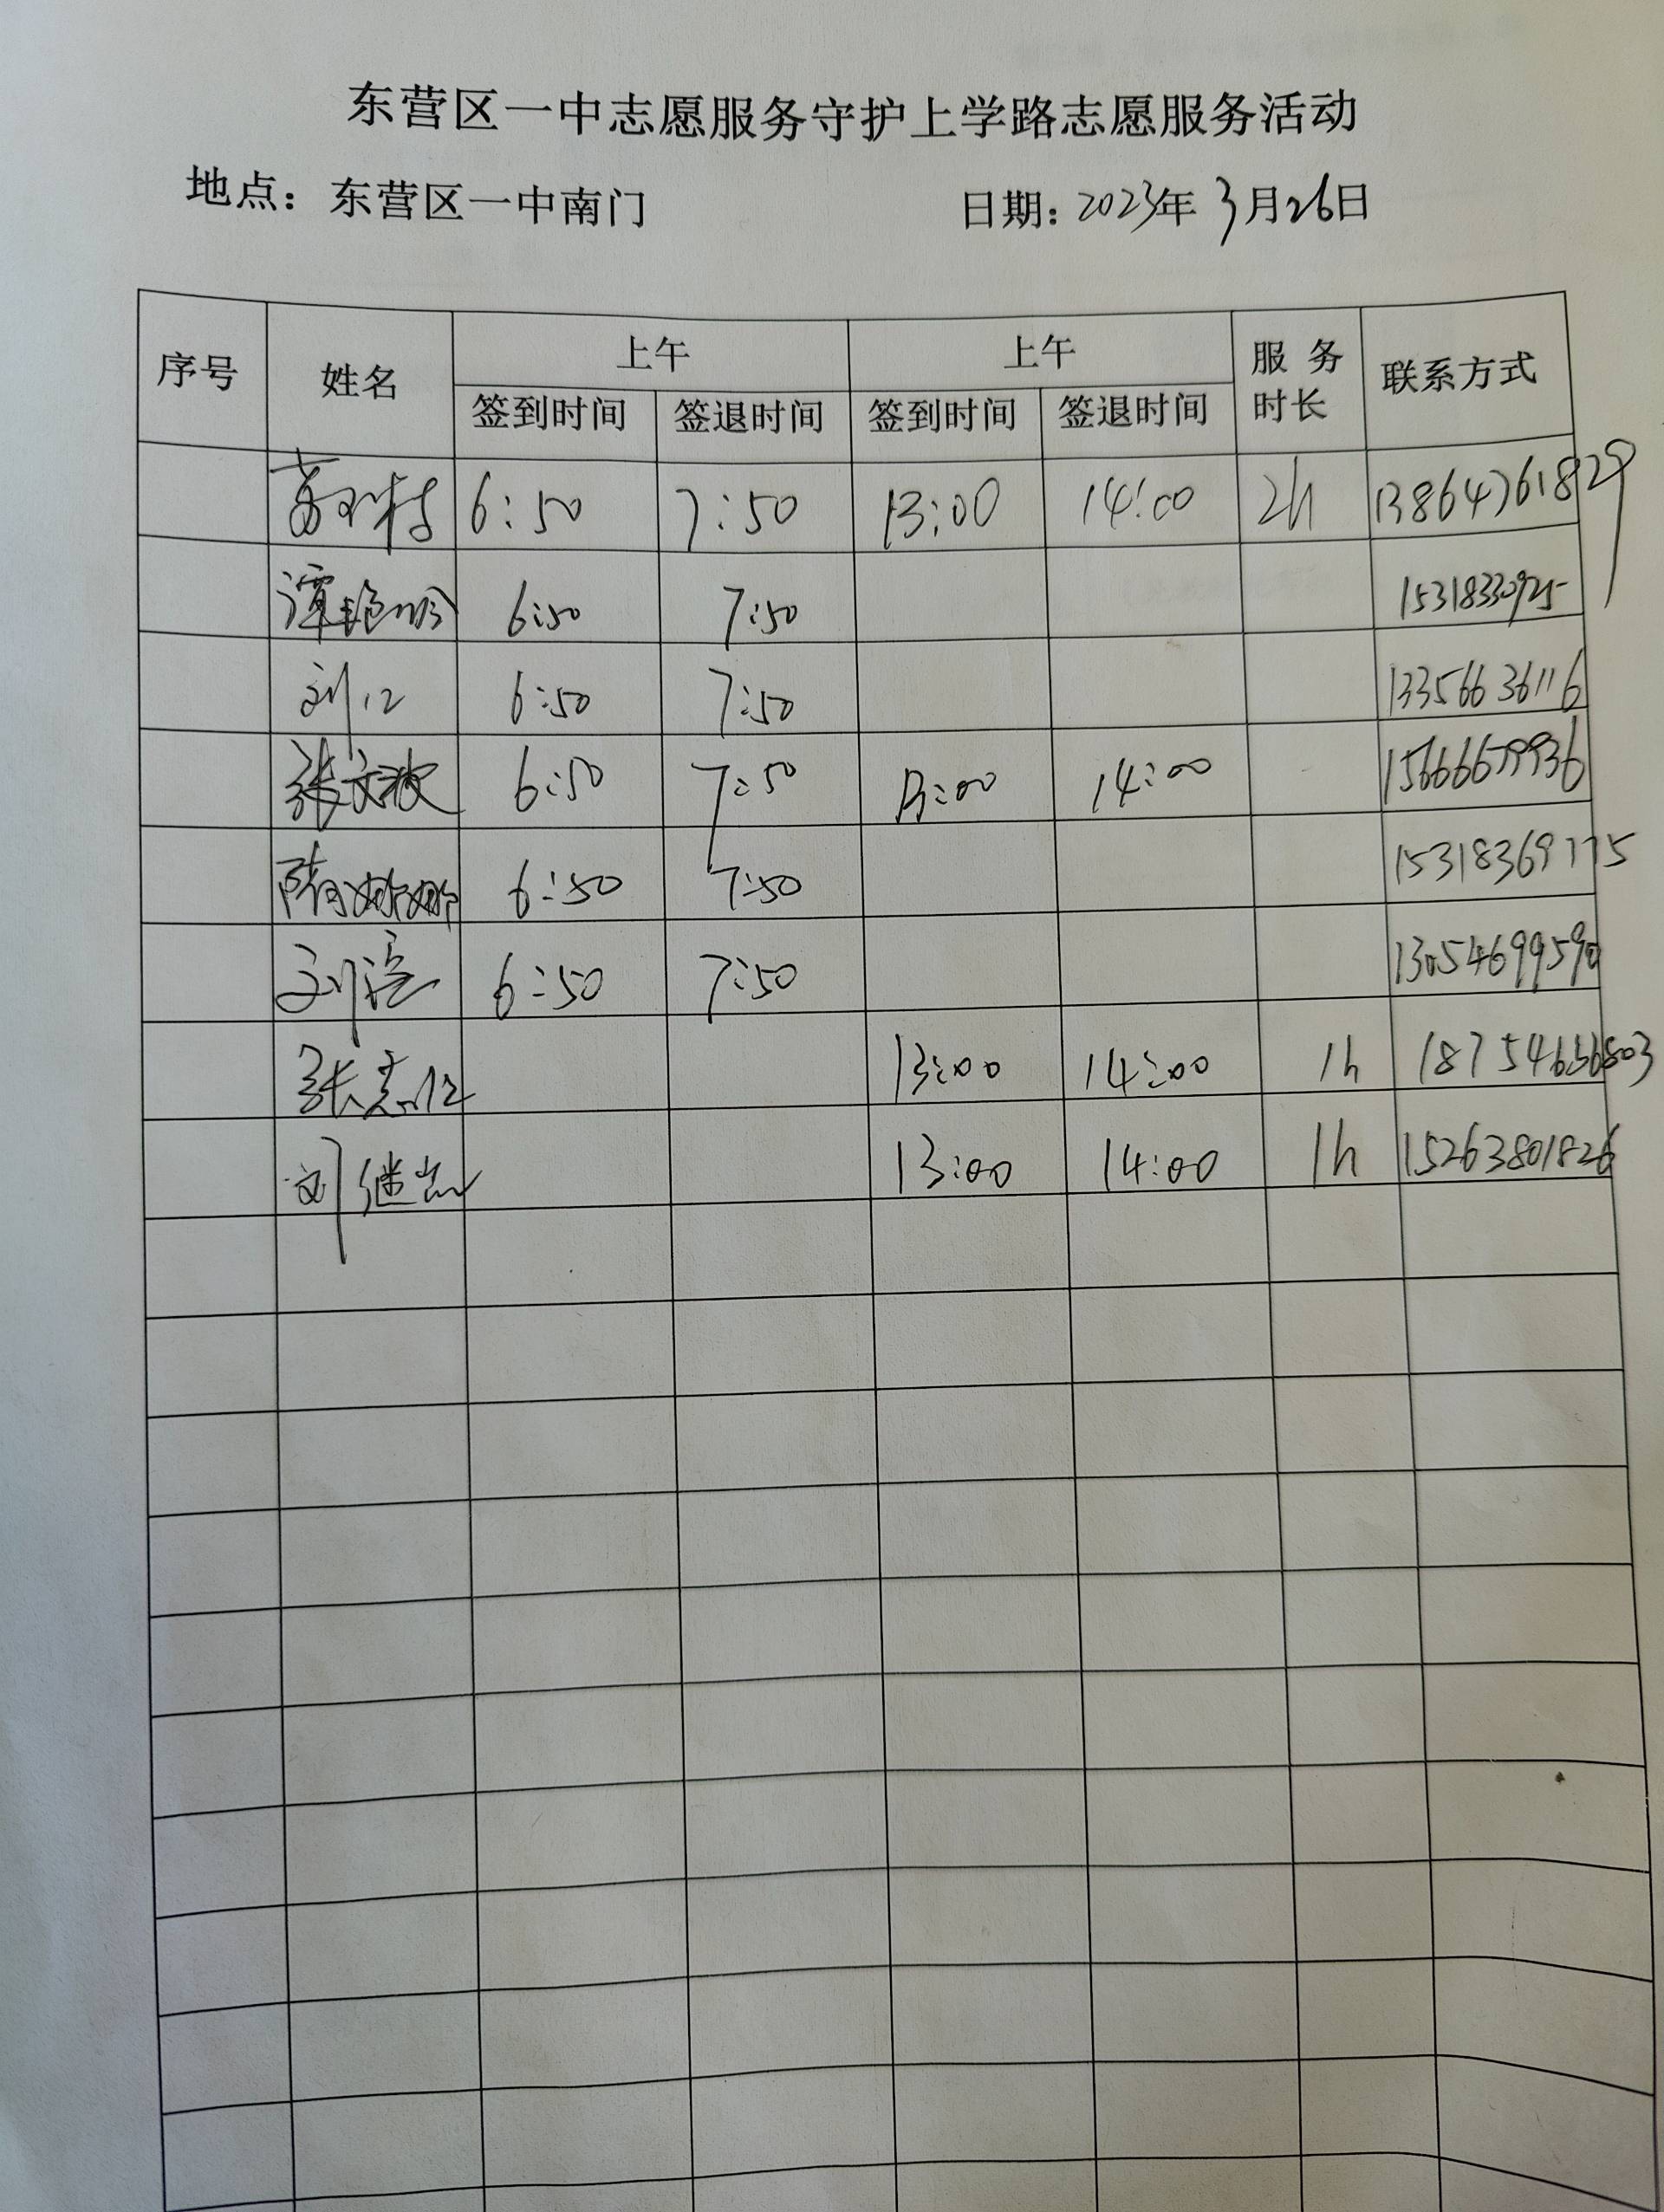 东营区一中志愿服务守护上学路志愿服务活动
地点：东营区一中南门 日期：2023年3月26日
序号 姓名 上午 上午 服务时长 联系方式
签到时间 签退时间 签到时间 签退时间
6:50 7:50 13:00 14:00 2h 13864761829
谭艳明 6:50 7:50 15318330925
刘江 6:50 7:50 13356636116
张文波 6:50 7:50 13:00 14:00 15666679936
隋娜娜 6:50 7:50 15318369775
刘 6:50 7:50 13054699590
张志江 13:00 14:00 1h 18754656803
刘继岩 13:00 14:00 1h 15263801826